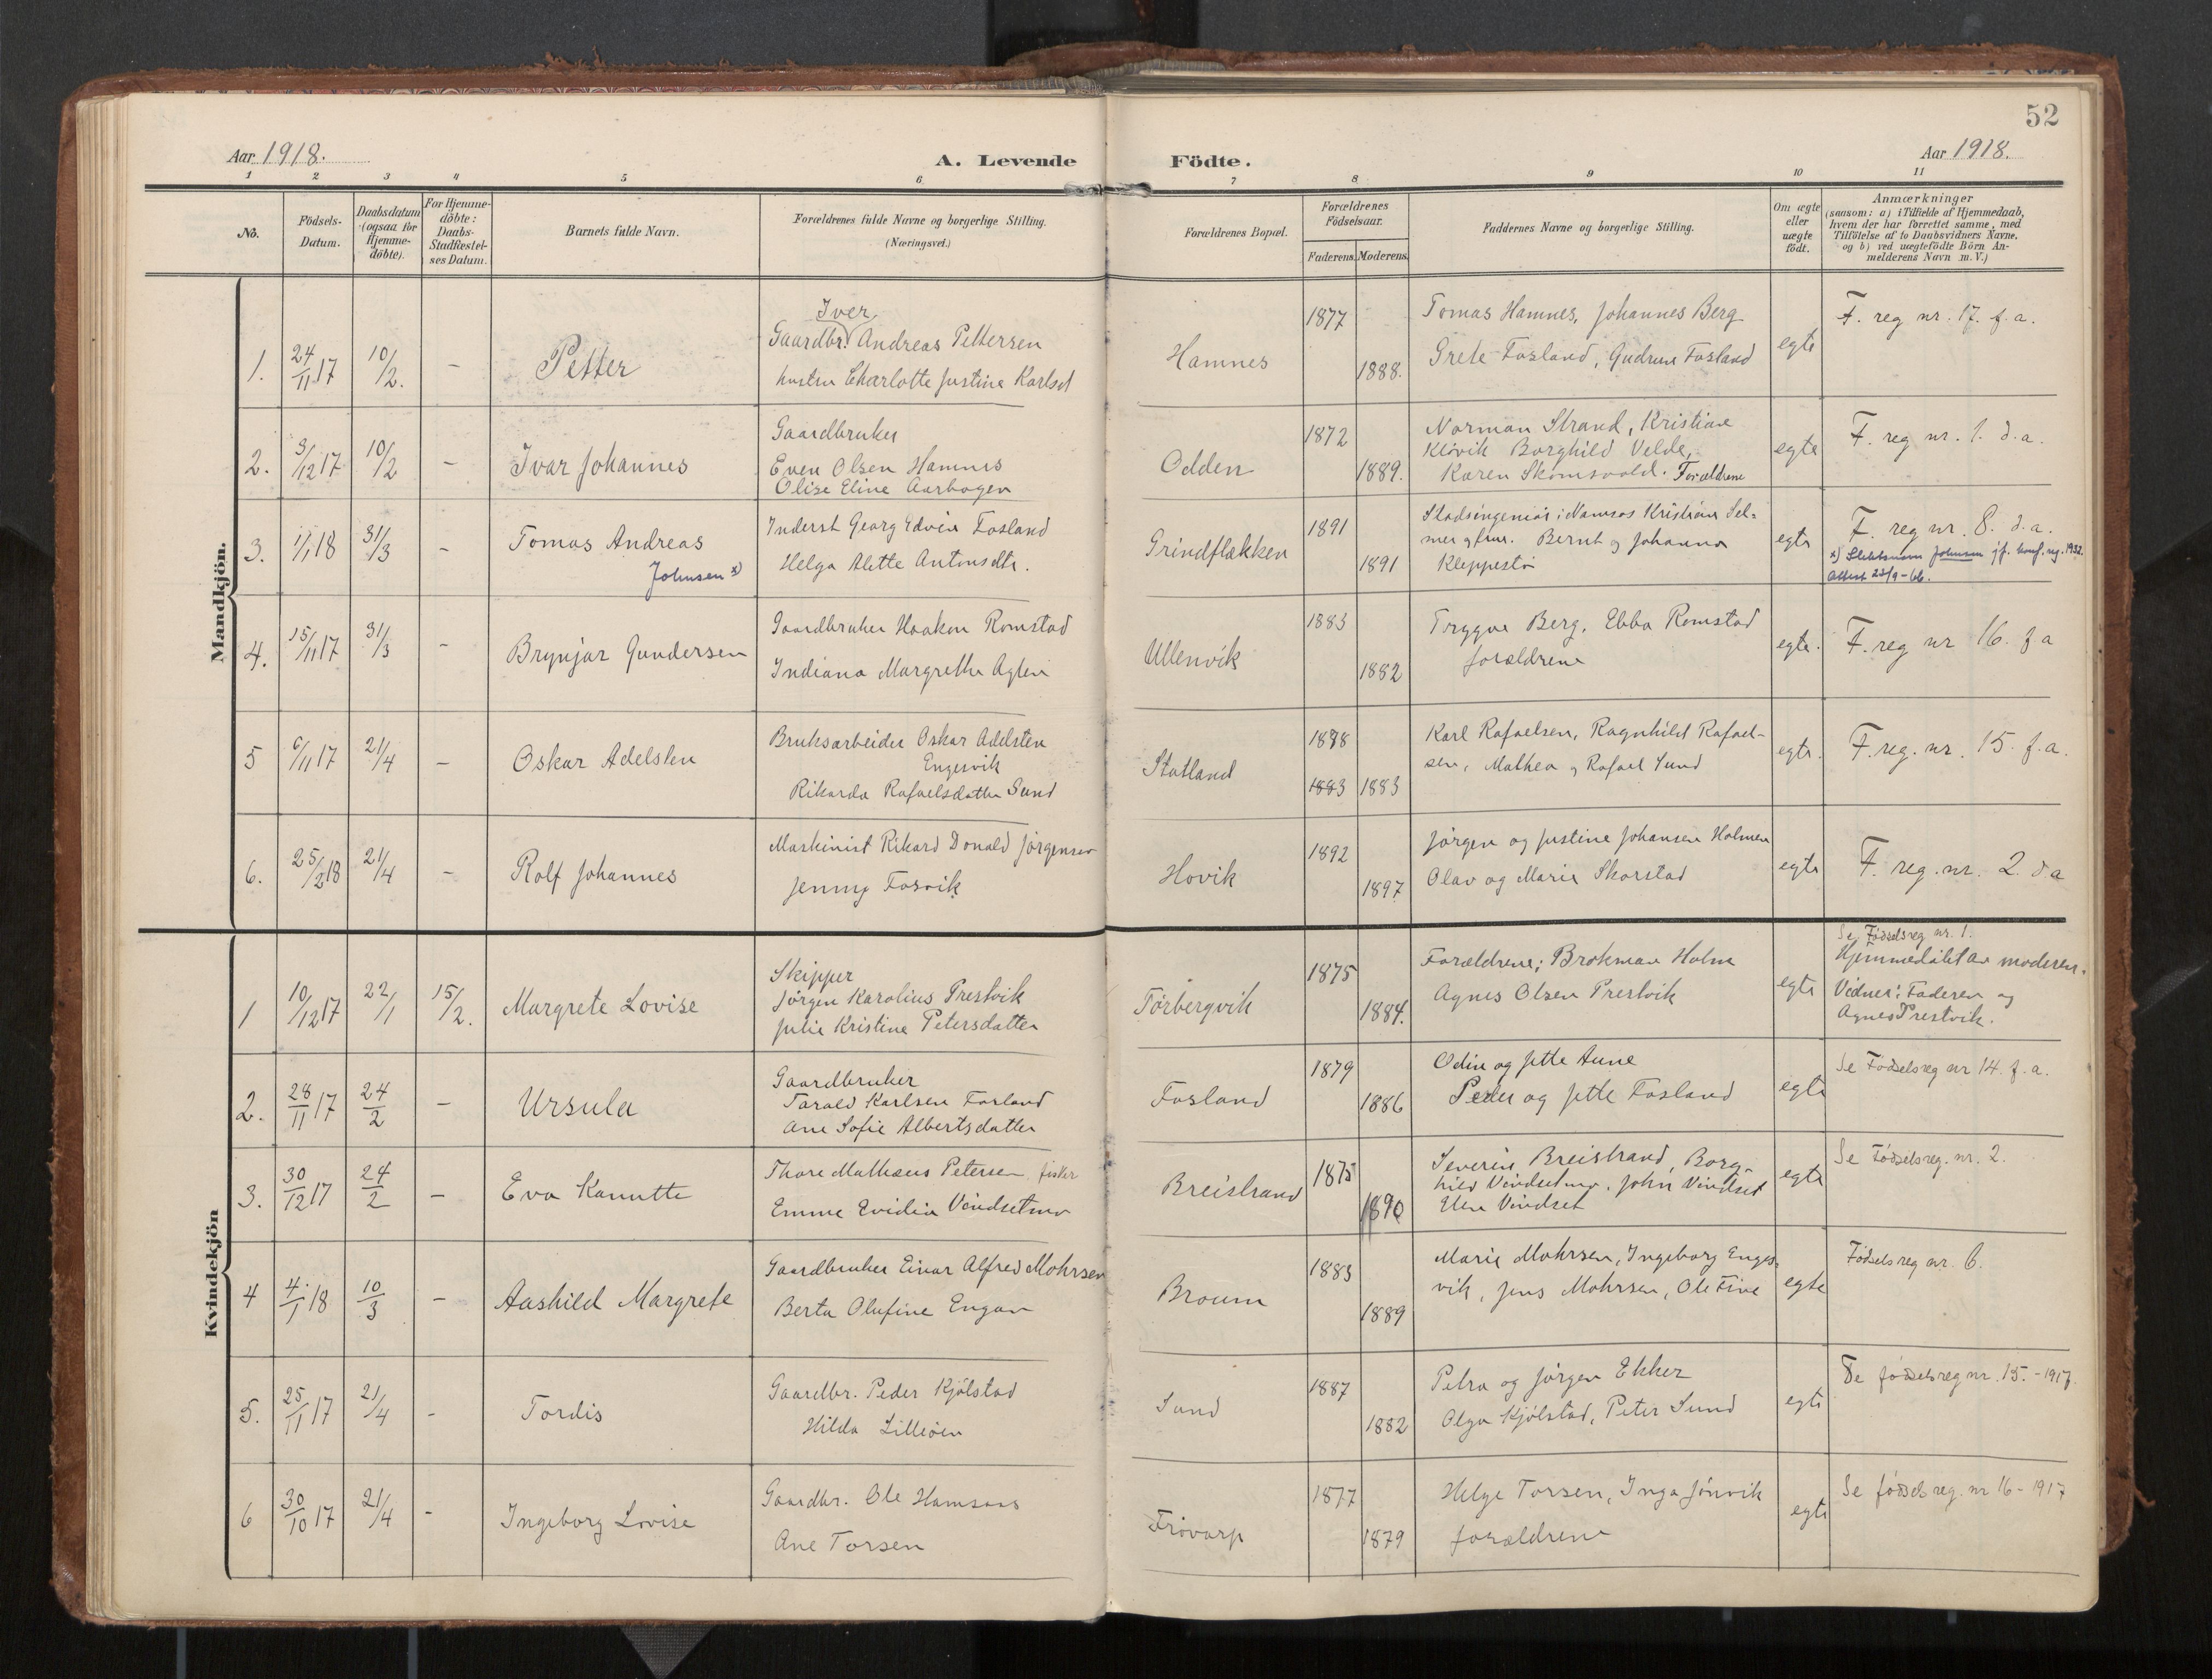 52
Aar 1918. A. Levende Födte. Aar 1918.
1 2 3 4 5 6 7 8 9 10 11
No.
Födsels-
Datum.
Daabsdatum
(ogsaa for
Hjemme-
döbte).
For Hjemme-
döbte:
Daabs-
Stadfæstel-
ses Datum.
Barnets fulde Navn.
Forældrenes fulde Navne og borgerlige Stilling.
(Næringsvei.)
Forældrenes Bopæl.
Forældrenes
Födselsaar.
Faderens. Moderens.
Faddernes Navne og borgerlige Stilling.
Om ægte
eller
uægte
födt.
Anmærkninger
(saasom: a) i Tilfælde af Hjemmedaab,
hvem der har forrettet samme, med
Tilföielse af to Daabsvidners Navne,
og b) ved uægtefödte Börn An-
melderens Navn m. V.)
Mandkjön.
1. 24/11 17 10/2. - Petter
Iver
Gaardbr. Andreas Pettersen
hustru Charlotte Justine Karlsd
Hamnes 1877 1888.
Tomas Hamnes, Johannes Berg
Grete Fosland, Gudrun Fosland
egte
F. reg nr. 17. f.a.
2. 3/12 17 10/2 - Ivar Johannes
Gaardbruker
Even Olsen Hamnes
Olise Eline Aarbogen
Odden 1872 1889.
Norman Strand, Kristiane
Kløvik Borghild Velde,
Karen Skomsvold. Forældrene
egte
F. reg nr. 1. d.a.
3. 1/1 18 31/3 - Tomas Andreas
Johnsen x)
Inderst Georg Edvin Fosland
Helga Alette Antonsdtr.
Grindflækken 1891 1891
Stadsingeniør i Namsos Kristian Sel-
mer og frue. Bernt og Johanna
Kleppestø
egte
F. reg nr. 8. d.a.
x) Slektsnavn Johnsen jf. konf. reg. 1932.
Attest 23/9-66.
4. 15/11 17 31/3 - Brynjar Gundersen
Gaardbruker Haakon Romstad
Indiana Margrethe Aglen
Ullenvik 1883 1882
Trygve Berg, Ebba Romstad
forældrene
egte.
F. reg nr 16. f a
5 6/11 17 21/4 - Oskar Adelsten
Bruksarbeider Oskar Adelsten
Engesvik
Rikarda Rafaelsdatter Sund
Statland 1878 1883 1883
Karl Rafaelsen, Ragnhild Rafael-
sen, Mathea og Rafael Sund
egte.
F. reg. nr. 15. f.a.
6. 25/2 18 21/4 - Rolf Johannes
Maskinist Rikard Donald Jørgensen
Jenny Fosvik
Hovik 1892 1897
Jørgen og Justine Johansen Holmen
Olav og Marie Skorstad
egte
F. reg. nr. 2. d a
Kvindekjön
1 10/12 17 22/1 15/2. Margrete Lovise
Skipper
Jørgen Karolius Prestvik
Julie Kristine Petersdatter
Tørbergvik 1875 1884.
Forældrene; Brokman Holm
Agnes Olsen Prestvik
egte
Se Fødselsreg nr. 1.
Hjemmedøbt av moderen.
Vidner: Faderen og
Agnes Prestvik.
2. 28/11 17 24/2 - Ursula
Gaardbruker
Tarald Karlsen Fosland
Ane Sofie Albertsdatter
Fosland 1879 1886
Odin og Jette Aune
Peder og Jette Fosland
egte
Se Fødselsreg nr 14. f.a.
3. 30/12 17 24/2 - Eva Kanutte
Thore Mathæus Petersen fisker
Emme Evidia Vindsetmo
Breistrand 1875 1890
Severin Breistrand, Borg-
hild Vindsetmo, John Vindset
Elen Vindset
egte
Se Fødselsreg. nr. 2.
4 4/1 18 10/3 - Aashild Margrete
Gaardbruker Einar Alfred Mohrsen
Berta Olufine Engan
Broum 1883 1889
Marie Mohrsen, Ingeborg Enges-
vik, Jens Mohrsen, Ole Fine
egte
Fødselsreg nr. 6.
5. 25/11 17 21/4 - Tordis
Gaardbr. Peder Kjølstad
Hilda Lilleøen
Sund 1887 1882
Petra og Jørgen Ekker
Olga Kjølstad, Peter Sund
egte
Se fødselsreg nr. 15. - 1917.
6 30/10 17 21/4 - Ingeborg Lovise
Gaardbr. Ole Homsaas
Ane Torsen
Frøvarp 1877 1879
Helge Torsen, Inga Jønvik
forældrene
egte
Se fødselsreg. nr 16 - 1917